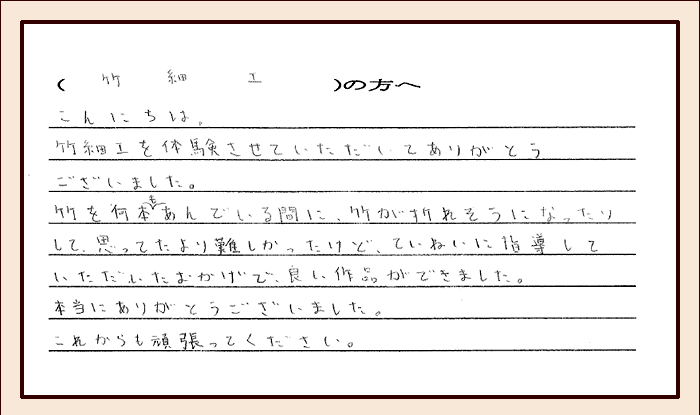 (竹細工)の方へ
こんにちは。
竹細工を体験させていただいてありがとう
ございました。
竹を何本もあんでいる間に、竹が折れそうになったり
して、思ってたより難しかったけど、ていねいに指導して
いただいたおかげで、良い作品ができました。
本当にありがとうございました。
これからも頑張ってください。